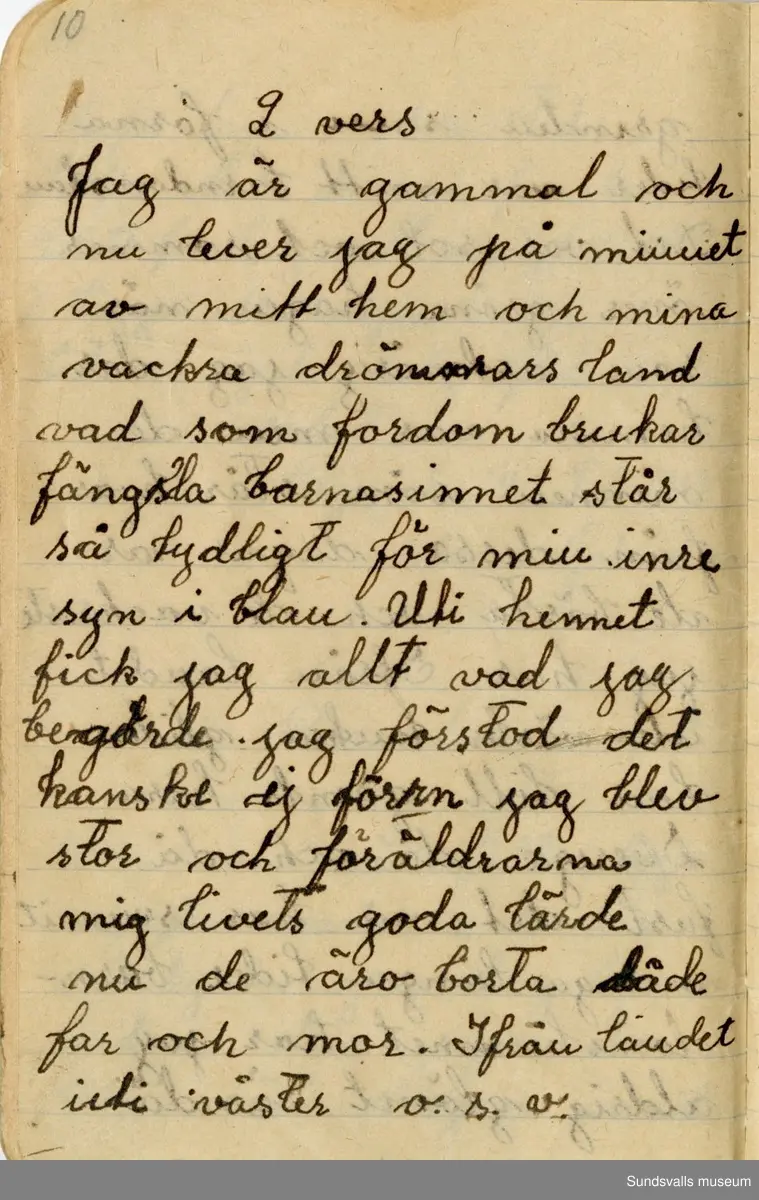 10
2 vers
Jag är gammal och
nu lever jag på minnet
av mitt hem och mina
vackra drömmars land
vad som fordom brukar
fängsla barnasinnet står
så tydligt för min inre
syn i blan. Uti hemmet
fick jag allt vad jag
begärde jag förstod det
kanske ej förrn jag blev
stor och föräldrarna
mig livets goda lärde
nu de äro borta både
far och mor. Ifrån landet
uti väster o. s. v.
Sundsvalls museum